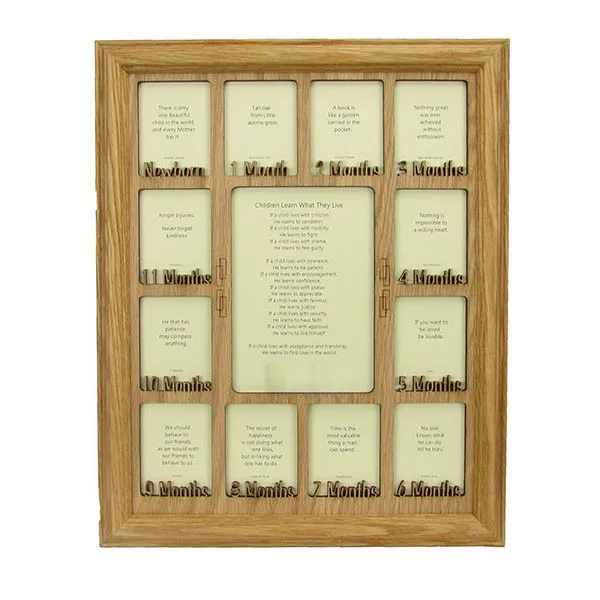 There is only
one Beautiful
child in the world,
and every Mother
has it.
Newborn
Tall oak
from Little
acorns grow.
1 Month
A book is
like a garden
carried in the
pocket.
2 Months
Nothing great
was ever
achieved
without
enthusiasm.
3 Months
Forget Injuries.
Never forget
kindness.
11 Months
Children Learn What They Live
If a child lives with criticism
He learns to condemn.
If a child lives with hostility,
He learns to fight.
If a child lives with shame,
He learns to feel guilty.
If a child lives with tolerance,
He learns to be patient.
If a child lives with encouragement,
He learns confidence.
If a child lives with praise,
He learns to appreciate.
If a child lives with fairness,
He learns justice.
If a child lives with security,
He learns to have faith.
If a child lives with approval,
He learns to like himself.
If a child lives with acceptance and friendship,
He learns to find love in the world.
Nothing is
impossible to
a willing heart.
4 Months
He that has
patience
may compass
anything.
10 Months
If you want to
be loved
be lovable.
5 Months
We should
behave to
our friends,
as we would wish
our friends to
behave to us.
9 Months
The secret of
happiness
is not doing what
one likes,
but in liking what
one has to do.
8 Months
Time is the
most valuable
thing a man
can spend.
7 Months
No one
knows what
he can do
till he tries.
6 Months